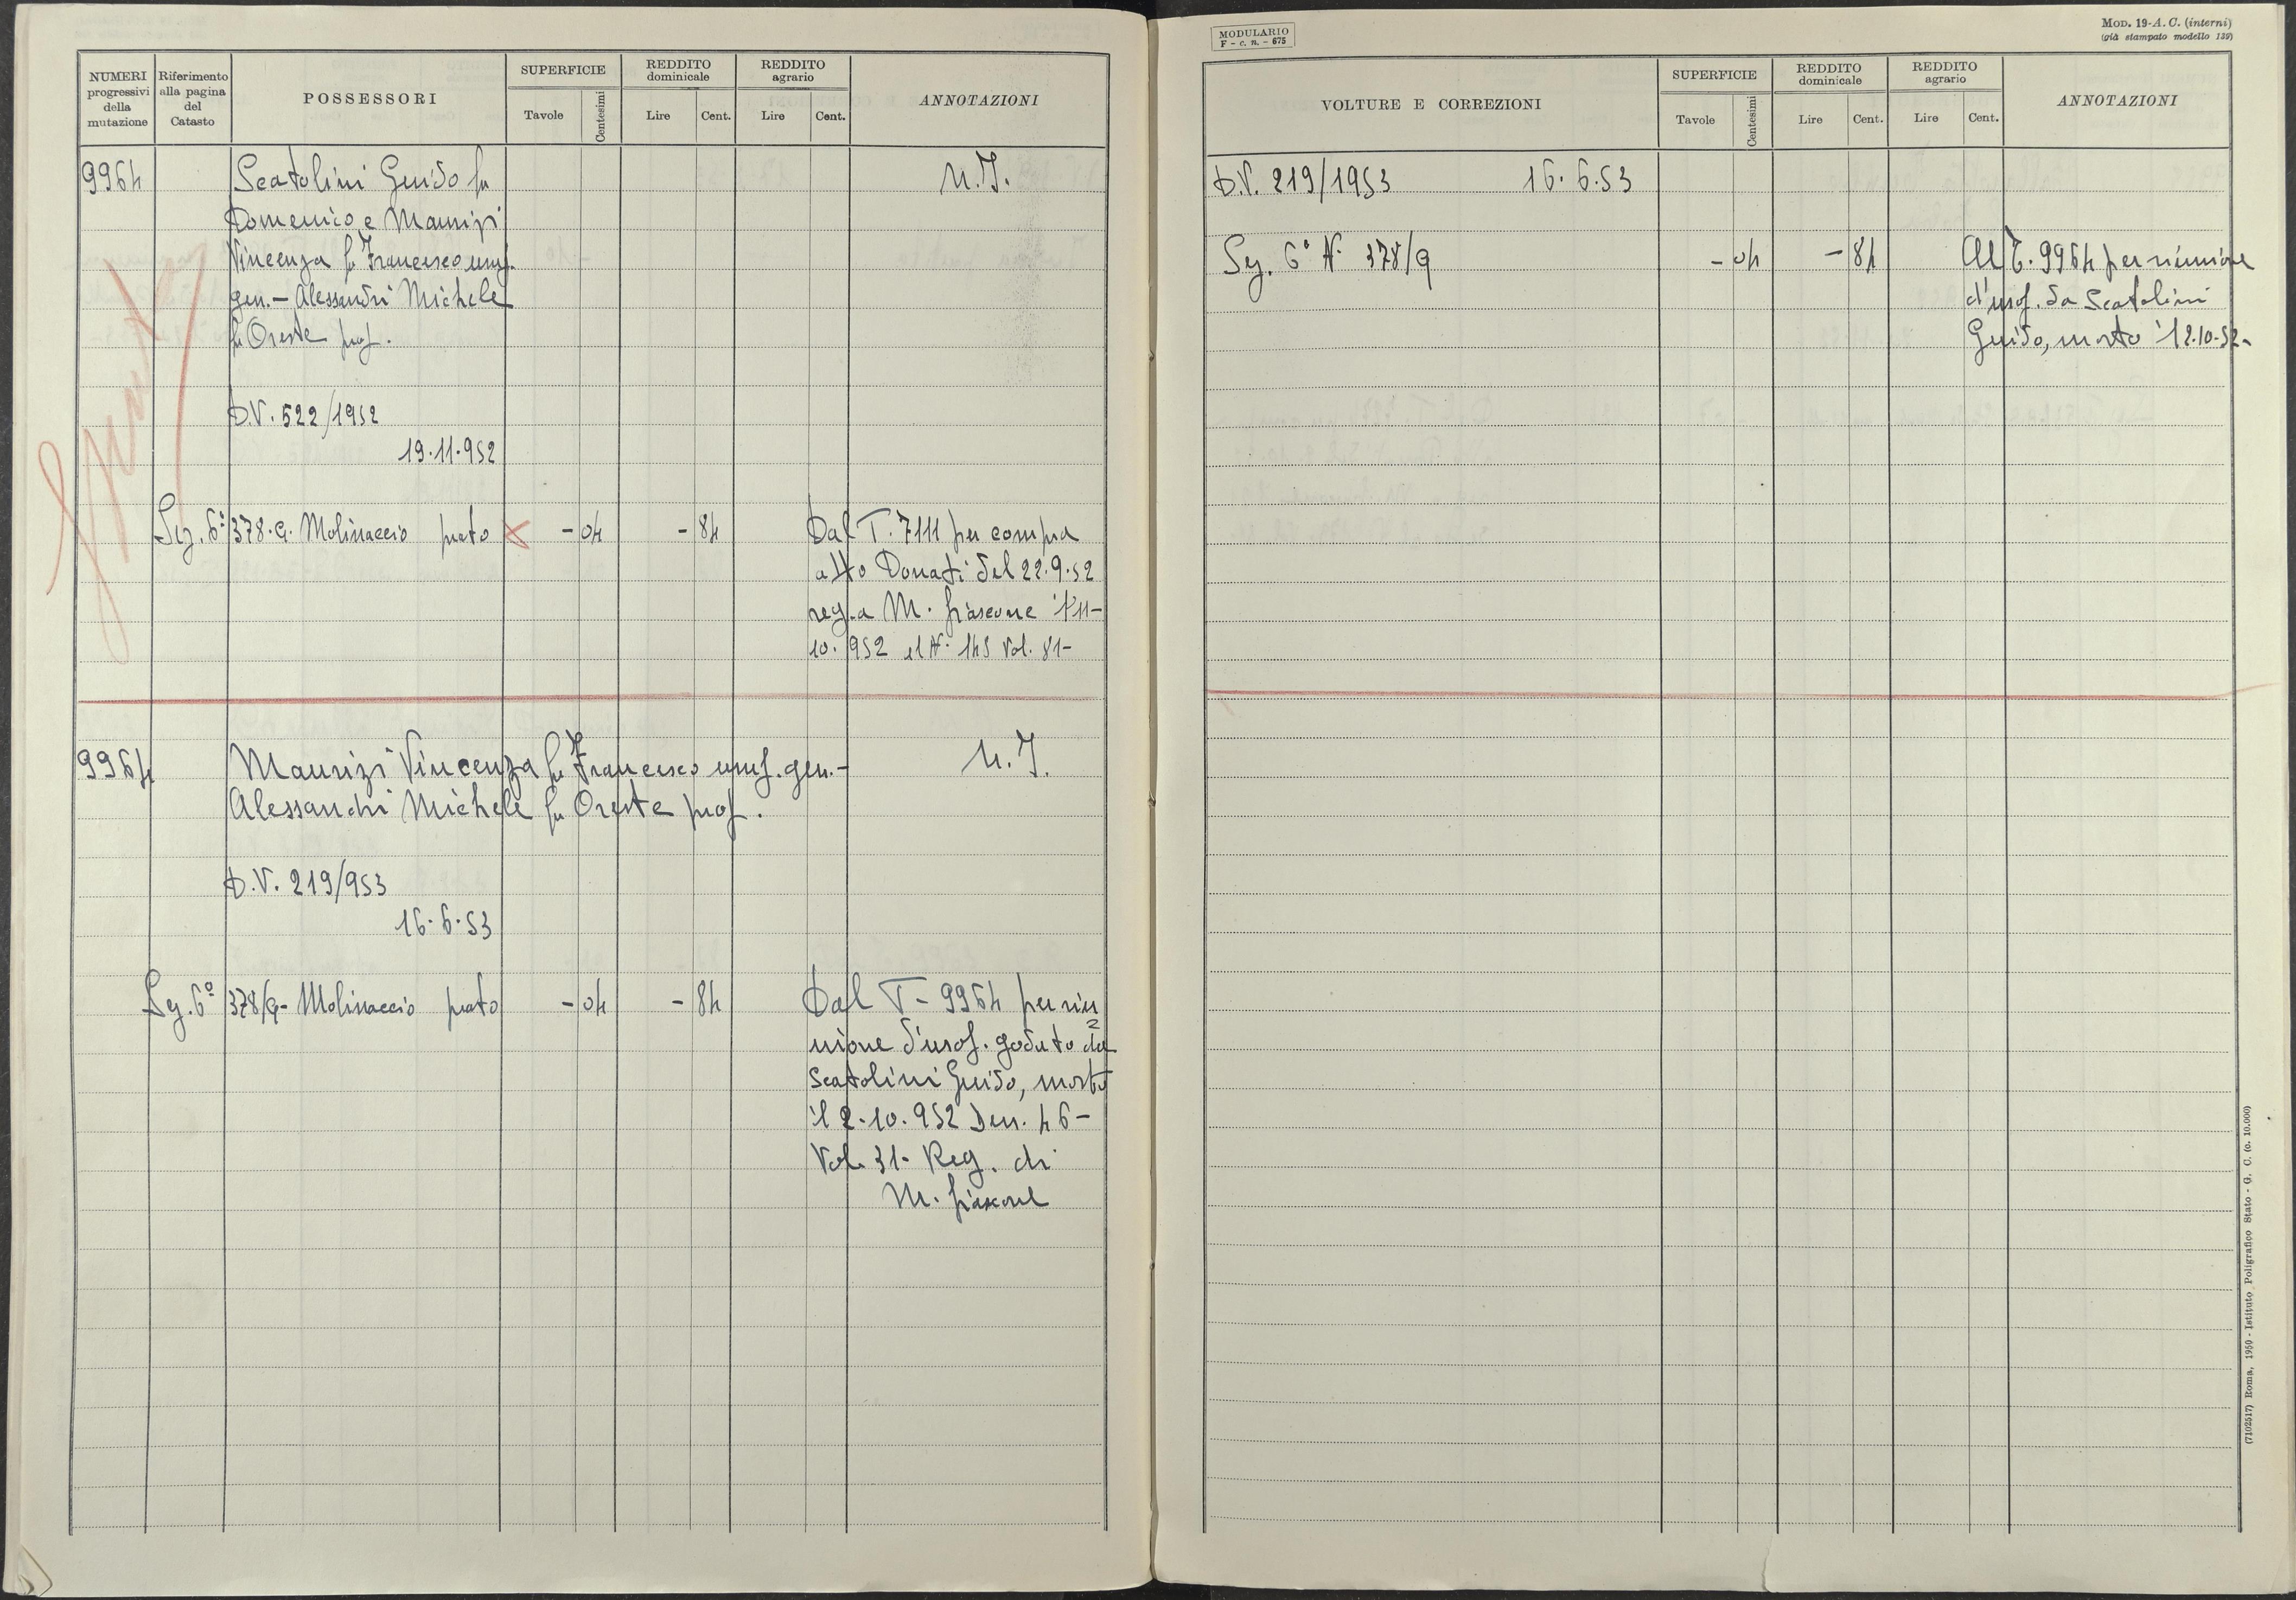 NUMERI progressivi della mutazione
Riferimento alla pagina del Catasto
POSSESSORI
SUPERFICIE
Tavole
Centesimi
REDDITO dominicale
Lire
Cent.
REDDITO agrario
Lire
Cent.
ANNOTAZIONI
9964
Scatolini Guido fu
N.I.
Domenico e Maurizi
Vincenza fu Francesco usuf.
gen.- Alessandri Michele
fu Oreste prof.
D.V. 522/1952
19.11.952
Sez. 6ª 378. Molinaccio prato X - 04 - 84
Dal T. 7111 per compra
atto Donati del 22.9.52
reg. a M. fiascone l'11-
10.952 al N. 145 Vol. 81-
9964
Maurizi Vincenza fu Francesco usuf. gen.-
N.I.
Alessandri Michele fu Oreste prof.
D.V. 219/953
16.6.53
Sez. 6ª 378/ - Molinaccio prato - 04 - 84
Dal T- 9964 per riu
nione d'usuf. goduto da
Scatolini Guido, morto
il 2.10.952 Den. 46-
Vol. 31- Reg. di
M. fiascone
MODULARIO
F - c. n. - 675
MOD. 19-A. C. (interni)
(già stampato modello 139)
VOLTURE E CORREZIONI
SUPERFICIE
Tavole
Centesimi
REDDITO dominicale
Lire
Cent.
REDDITO agrario
Lire
Cent.
ANNOTAZIONI
D.V. 219/1953 16.6.53
Sez. 6ª N. 378/ - 04 - 84
Al T. 9964 per riunione
d'usuf. da Scatolini
Guido, morto il 2.10.52-
(7102517) Roma, 1950 - Istituto Poligrafico Stato - G. C. (c. 10.000)